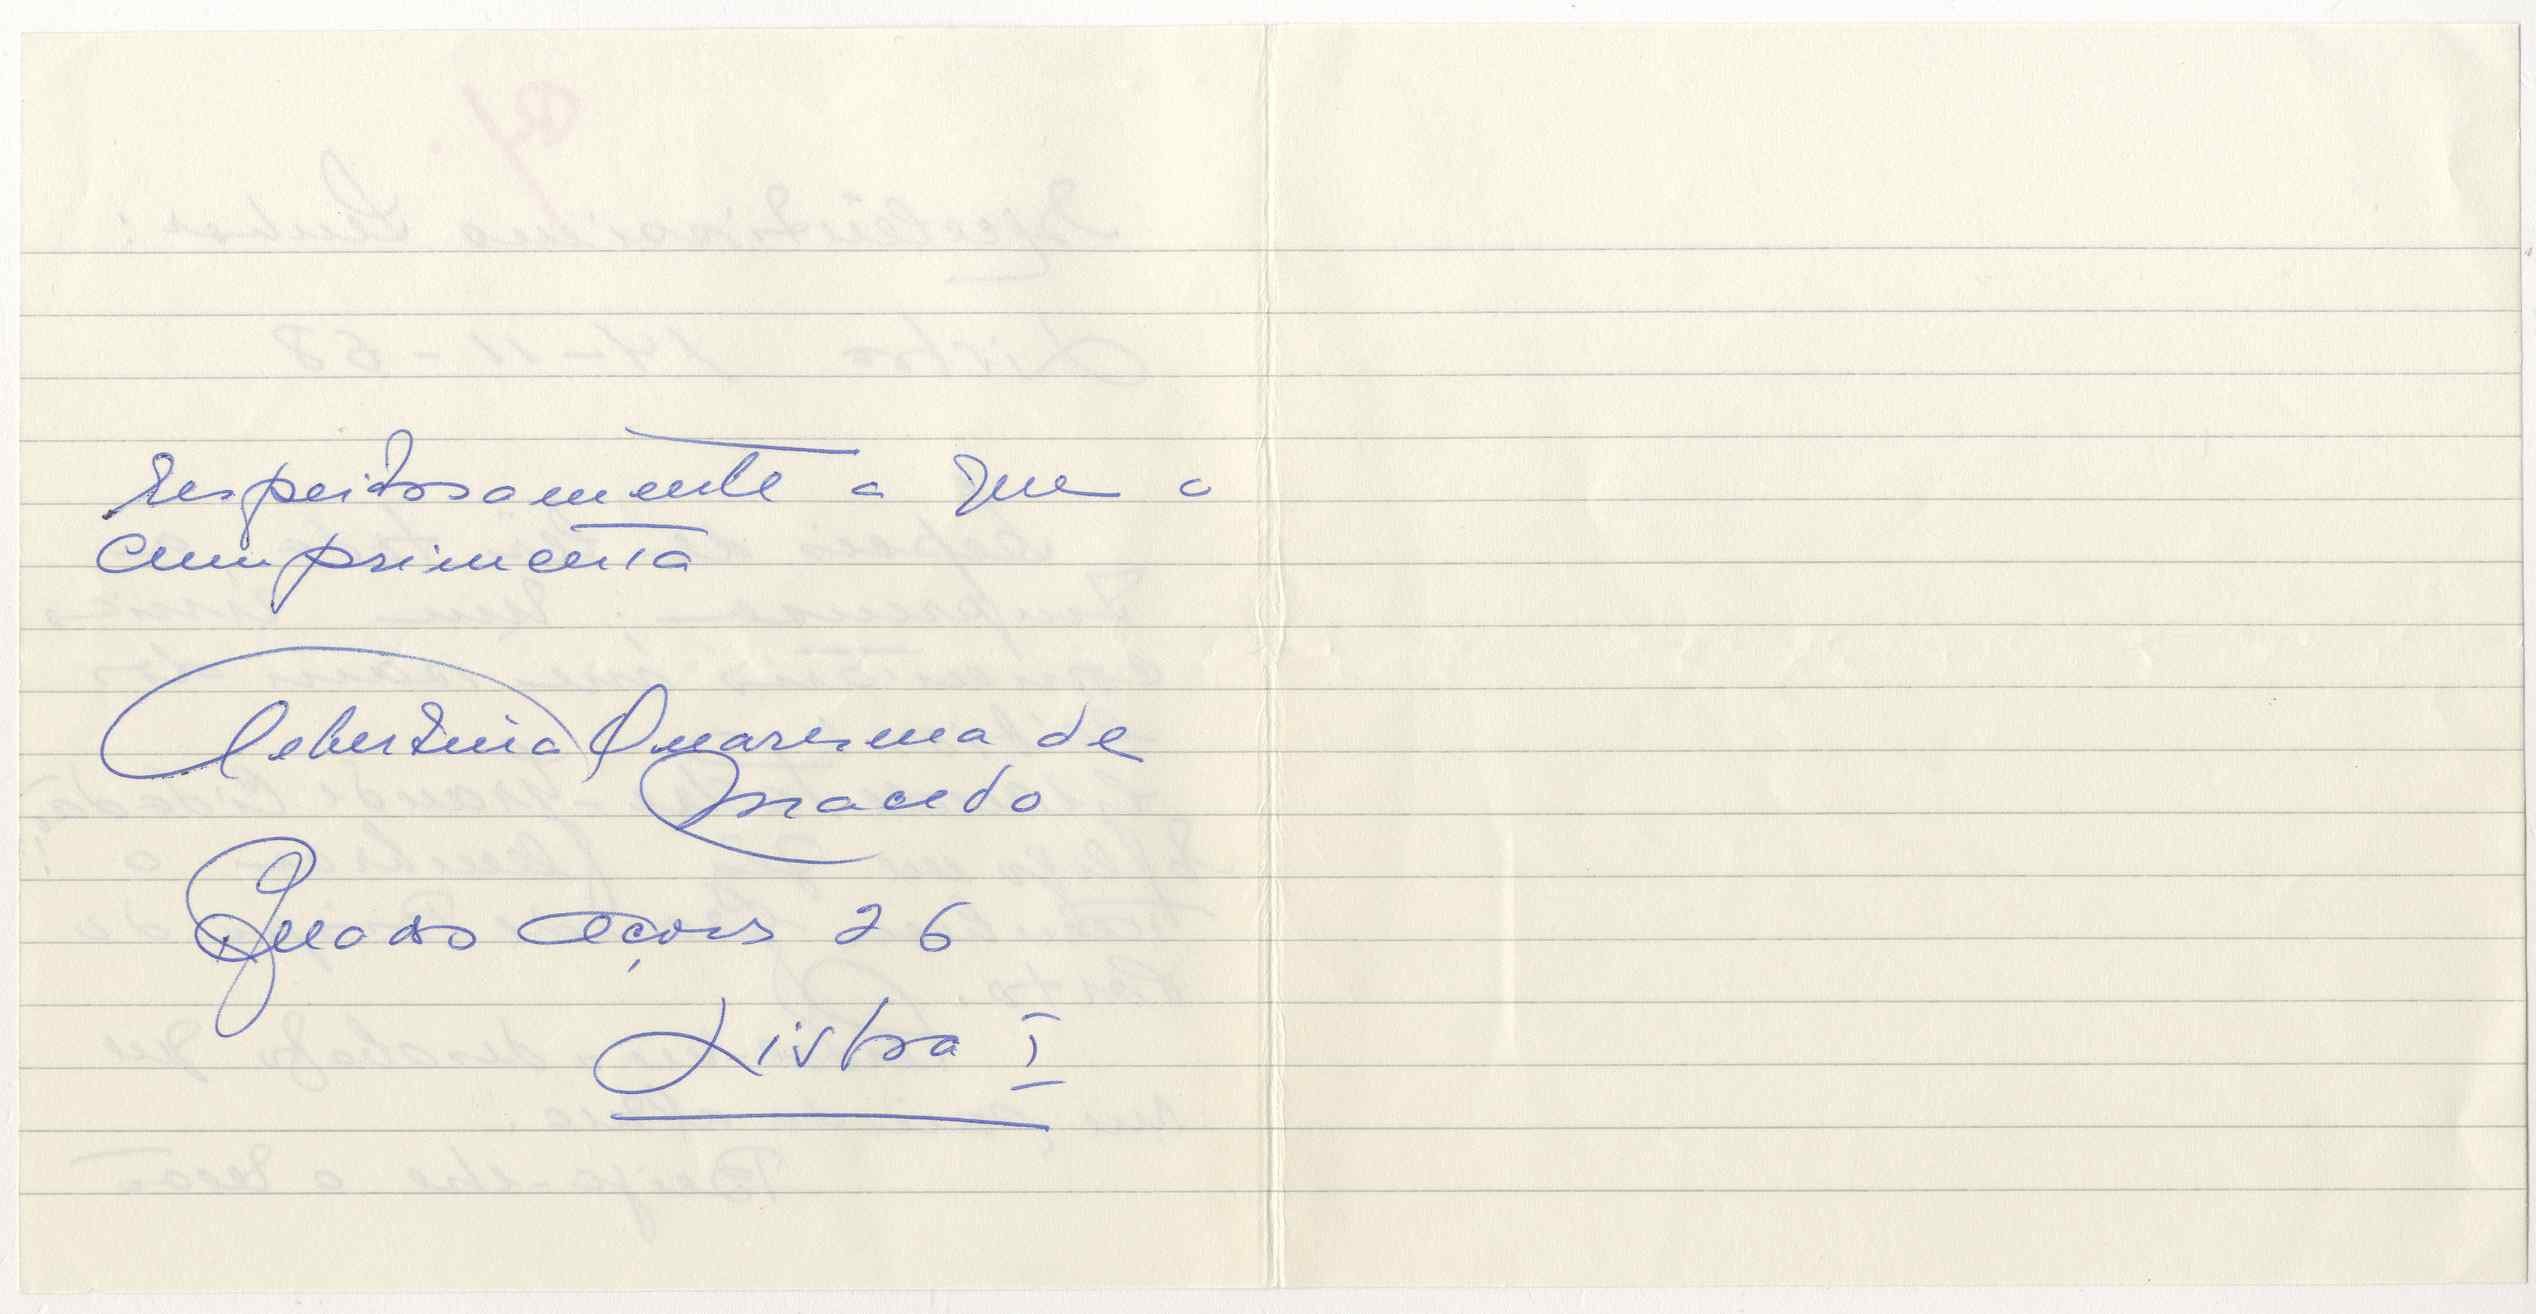 respeitosamente a que o
cumprimenta
Albertina Quaresma de
Macedo
Rua dos Açores 26
Lisboa I